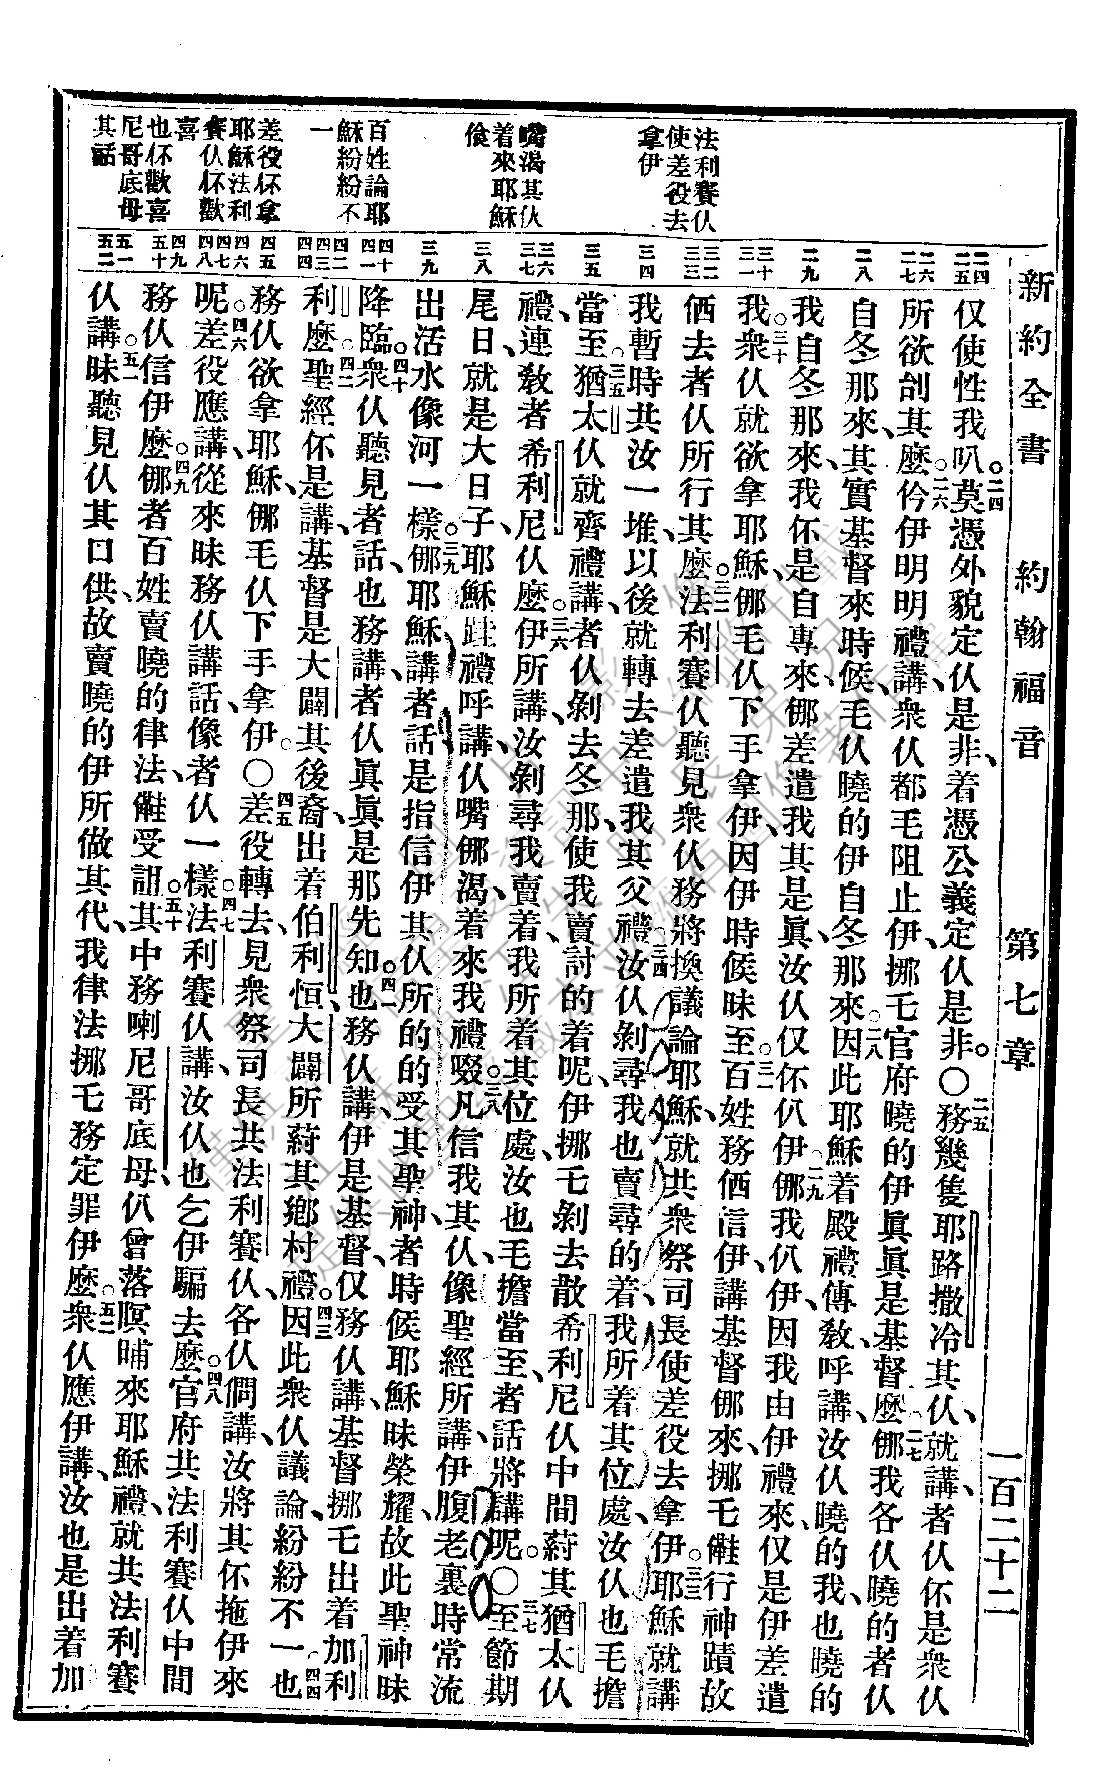 新約全書 約翰福音 第七章 一百二十二
法利賽伩
使差役去
拿伊
嘴渴其伩
着來耶穌
飲
百姓論耶
穌紛紛不
一
差役伓拿
耶穌法利
賽伩伓歡
喜
也伓歡喜
尼哥底母
其話
二四
二五
二六
二七
二八
二九
三十
三一
三二
三三
三四
三五
三六
三七
三八
三九
四十
四一
四二
四三
四四
四五
四六
四七
四八
四九
五十
五一
五二
仅使性我叭。二四莫憑外貌定伩是非、着憑公義定伩是非。〇二五務幾隻耶路撒冷其伩、就講、者伩伓是衆伩
所欲刣其麽。二六仱伊明明禮講、衆伩都毛阻止伊、挪乇官府曉的伊眞眞是基督麽。二七𠆧我各伩曉的者伩
自冬那來、其實基督來時候、毛伩曉的伊自冬那來。二八因此耶穌着殿禮傳敎呼講、汝伩曉的我、也曉的
我自冬那來、我伓是自專來、𠆧差遣我其是眞、汝伩仅伓仈伊。二九𠆧我仈伊、因我由伊禮來、仅是伊差遣
我。三十衆伩就欲拿耶穌、𠆧毛伩下手拿伊、因伊時候昧至。三一百姓務価信伊、講基督𠆧來、挪乇𠆧行神蹟、故
価去者伩所行其麽。三二法利賽伩聽見衆伩務將換議論耶穌、就共衆祭司長使差役去拿伊。三三耶穌就講、
我暫時共汝一堆、以後就轉去差遣我其父禮。三四汝伩剝尋我、也賣尋的着、我所着其位處、汝伩也毛擔
當至。三五猶太伩就齊禮講、者伩剝去冬那、使我賣討的着呢、伊挪乇剝去散希利尼伩中間荮其猶太伩
禮、連敎者希利尼伩麽。三六伊所講、汝剝尋我賣着、我所着其位處、汝也毛擔當至、者話將講呢。〇三七至節期
尾日、就是大日子、耶穌跬禮呼講、伩嘴𠆧渴、着來我禮啜。三八凡信我其伩、像聖經所講、伊腹老裏時常流
出活水像河一樣。三九𠆧耶穌講者話、是指信伊其伩所的的受其聖神、者時候耶穌昧榮耀、故此聖神昧
降臨。四十衆伩聽見者話、也務講者伩眞眞是那先知。四一也務伩講、伊是基督、仅務伩講、基督挪乇出着加利
利麽。四二聖經伓是講、基督是大闢其後裔、出着伯利恒、大闢所荮其鄉村禮。四三因此衆伩議論紛紛不一。四四也
務伩欲拿耶穌、𠆧毛伩下手拿伊。〇四五差役轉去、見衆祭司長共法利賽伩、各伩僩講、汝將其伓拖伊來
呢。四六差役應講、從來昧務伩講話像者伩一樣。四七法利賽伩講、汝伩也乞伊騙去麽。四八官府共法利賽伩中間
務伩信伊麽。四九𠆧者百姓賣曉的律法、𠆧受詛。五十其中務喇尼哥底母、仈曾落暝晡來耶穌禮、就共法利賽
伩講。五一昧聽見伩其口供、故賣曉的伊所做其代、我律法挪乇務定罪伊麽。五二衆伩應伊講、汝也是出着加